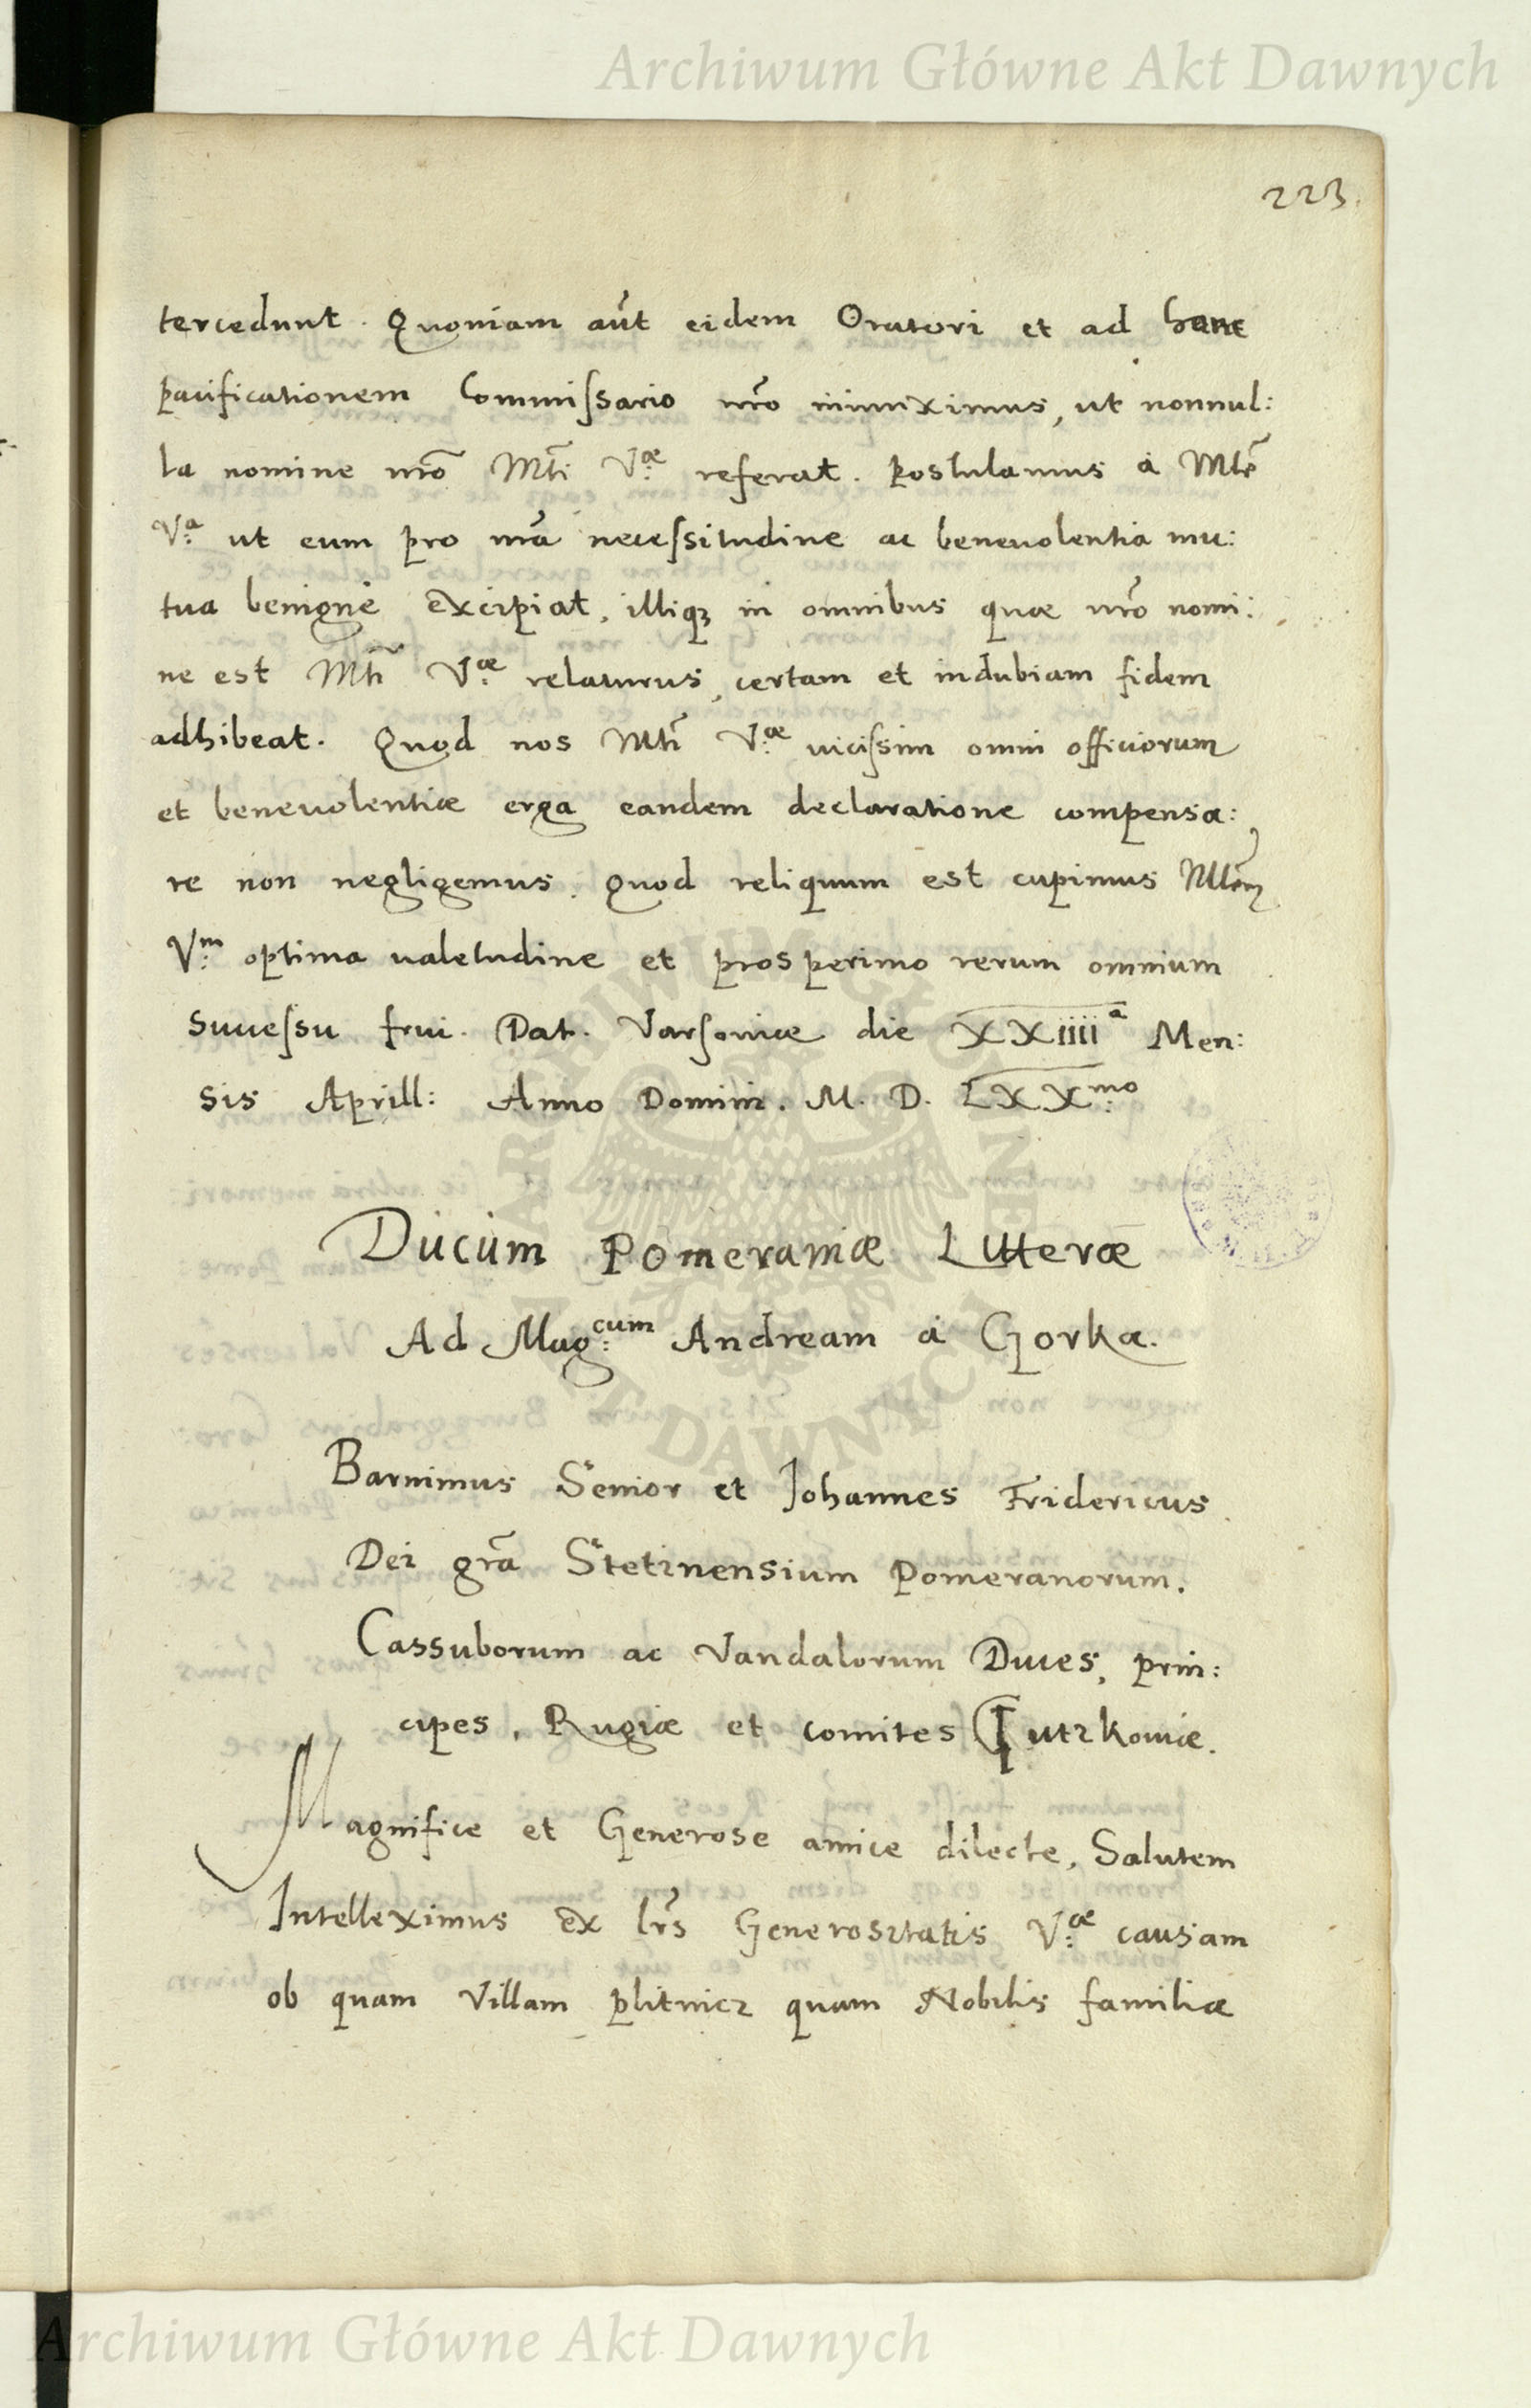 Archiwum Główne Akt Dawnych
223.
tercedunt. Quoniam aūt eidem Oratori et ad hanc
pacificationem Commiſsario nr̄o iniunximus, ut nonnul:
la nomine nr̄o Mti V:æ referat. Postulamus à Mte
V:a ut eum pro nr̄a neceſsitudine ac beneuolentia mu:
tua benignè excipiat, illiqꝫ in omnibus quæ nr̄o nomi:
ne est Mti V:æ relaturus, certam et indubiam fidem
adhibeat. Quod nos Mti V:æ uiciſsim omni officiorum
et beneuolentiæ erga eandem declaratione compensa:
re non negligemus. Quod reliquum est cupimus Mtem
V:m optima ualetudine et prosperimo rerum omnium
succeſsu frui. Dat. Varſouiæ die XXiiii a Men:
sis Aprill: Anno Domini. M. D. LXX:mo
Ducum Pomeraniæ Litteræ
Ad Mag:cum Andream à Gorka.
Barnimus Senior et Iohannes Fridericus
Dei gr̄a Stetinensium Pomeranorum.
Cassuborum ac Vandalorum Duces, prin:
cipes, Rugiæ et comites Gutzkouiæ.
Magnifice et Generose amice dilecte, Salutem
Intelleximus ex lr̄s Generositatis V:æ causam
ob quam Villam plitnicz quam Nobilis familiæ
ARCHIWUM GŁÓWNE AKT DAWNYCH
Archiwum Główne Akt Dawnych